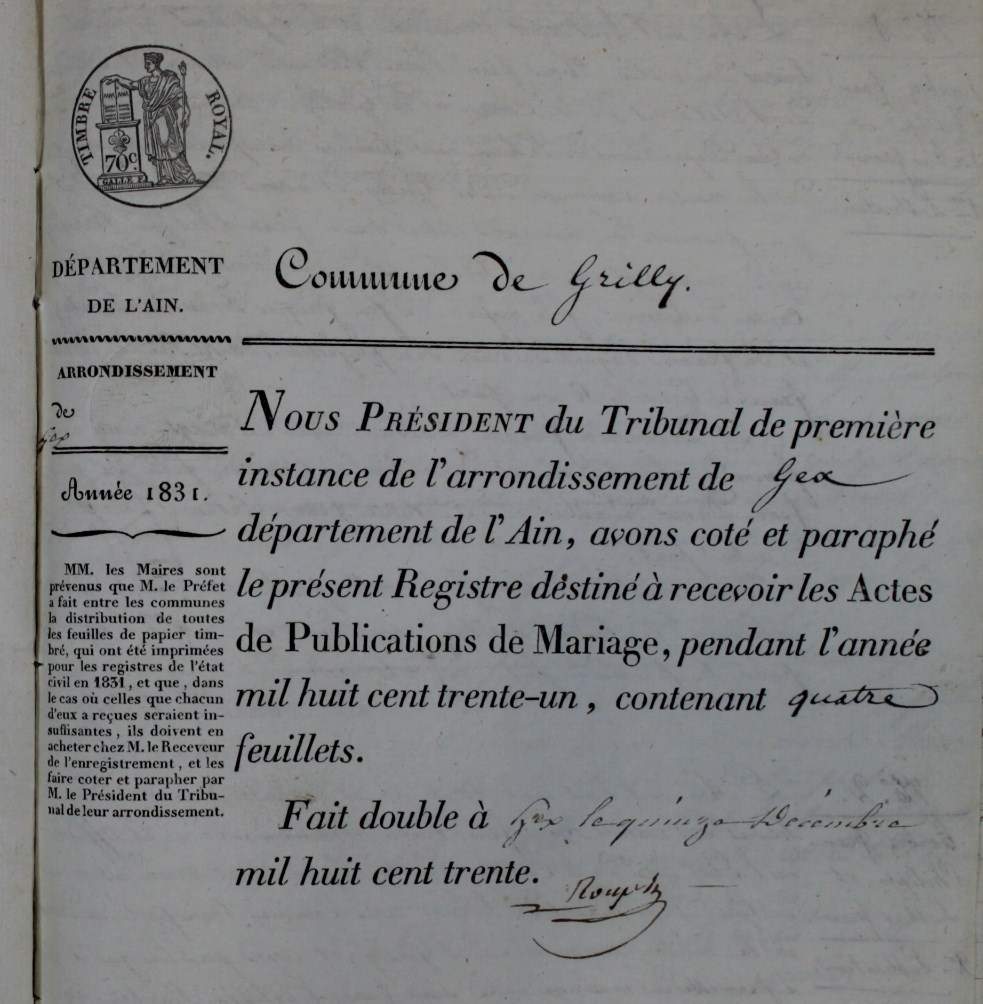 TIMBRE ROYAL.
70c.
GALLE F.
DÉPARTEMENT
DE L'AIN.
ARRONDISSEMENT
de
Gex
Année 1831.
MM. les Maires sont
prévenus que M. le Préfet
a fait entre les communes
la distribution de toutes
les feuilles de papier tim-
bré, qui ont été imprimées
pour les registres de l'état
civil en 1831, et que, dans
le cas où celles que chacun
d'eux a reçues seraient in-
suffisantes, ils doivent en
acheter chez M. le Receveur
de l'enregistrement, et les
faire coter et parapher par
M. le Président du Tribu-
nal de leur arrondissement.
Commune de Grilly.
NOUS PRÉSIDENT du Tribunal de première
instance de l'arrondissement de Gex
département de l'Ain, avons coté et paraphé
le présent Registre destiné à recevoir les Actes
de Publications de Mariage, pendant l'année
mil huit cent trente-un, contenant quatre
feuillets.
Fait double à Gex le quinze Décembre
mil huit cent trente.